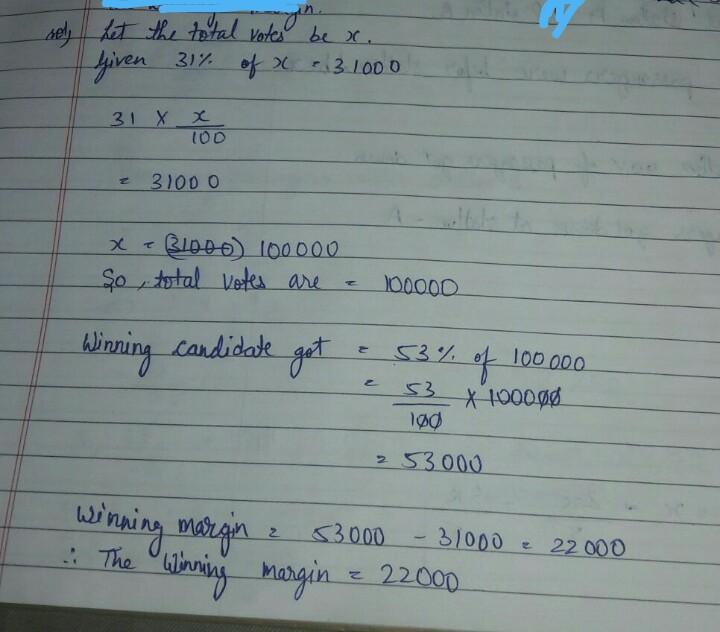 margin.
sol) Let the total votes be x.
Given 31% of x = 31000
31 X x/100
= 31000
x = (31000) 100000
So, total votes are = 100000
Winning candidate got = 53% of 100000
= 53/100 X 100000
= 53000
Winning margin = 53000 - 31000 = 22000
∴ The Winning margin = 22000